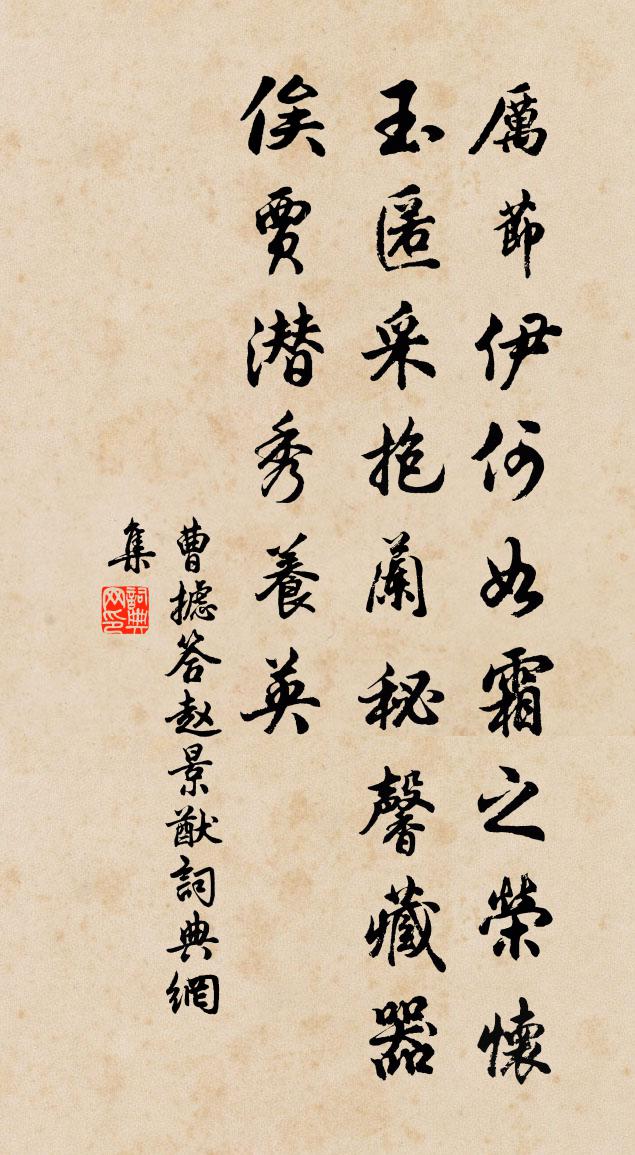 厲節伊何如霜之榮懷
玉匿采抱蘭秘馨藏器
俟賈潛秀養英
曹摅答赵景猷詞典網
集
詞典
网印